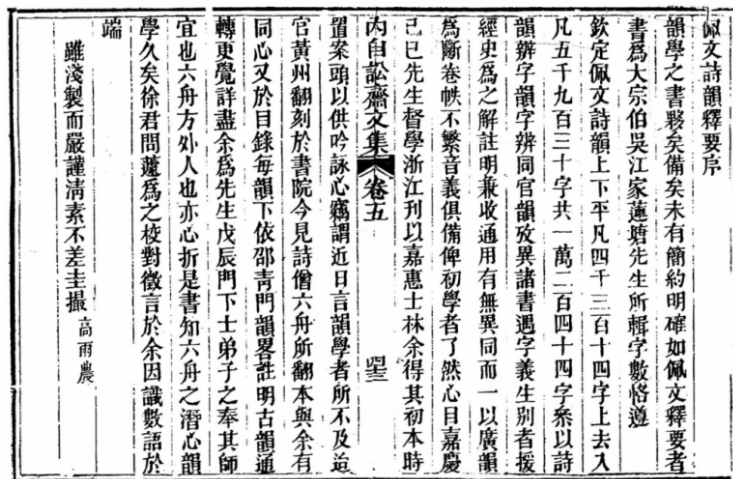 佩文詩韻釋要序
韻學之書夥矣備矣未有簡約明確如佩文釋要者
書爲大宗伯吳江家蓮塘先生所輯字數恪遵
欽定佩文詩韻上下平凡四千三百十四字上去入
凡五千九百三十字共一萬二百四十四字叅以詩
韻辨字韻字辨同官韻攷異諸書遇字義生別者援
經史爲之解註明兼收通用有無異同而一以廣韻
爲斷卷帙不繁音義俱備俾初學者了然心目嘉慶
己巳先生督學浙江刊以嘉惠士林余得其初本時
内自訟齋文集 卷五 四三
置案頭以供吟詠心竊謂近日言韻學者所不及迨
官黃州翻刻於書院今見詩僧六舟所翻本與余有
同心又於目錄每韻下依邵青門韻畧註明古韻通
轉更覺詳盡余爲先生戊辰門下士弟子之奉其師
宜也六舟方外人也亦心折是書知六舟之潛心韻
學久矣徐君問蘧爲之校對徵言於余因識數語於
端
雖淺製而嚴謹淸素不差圭撮 高雨農